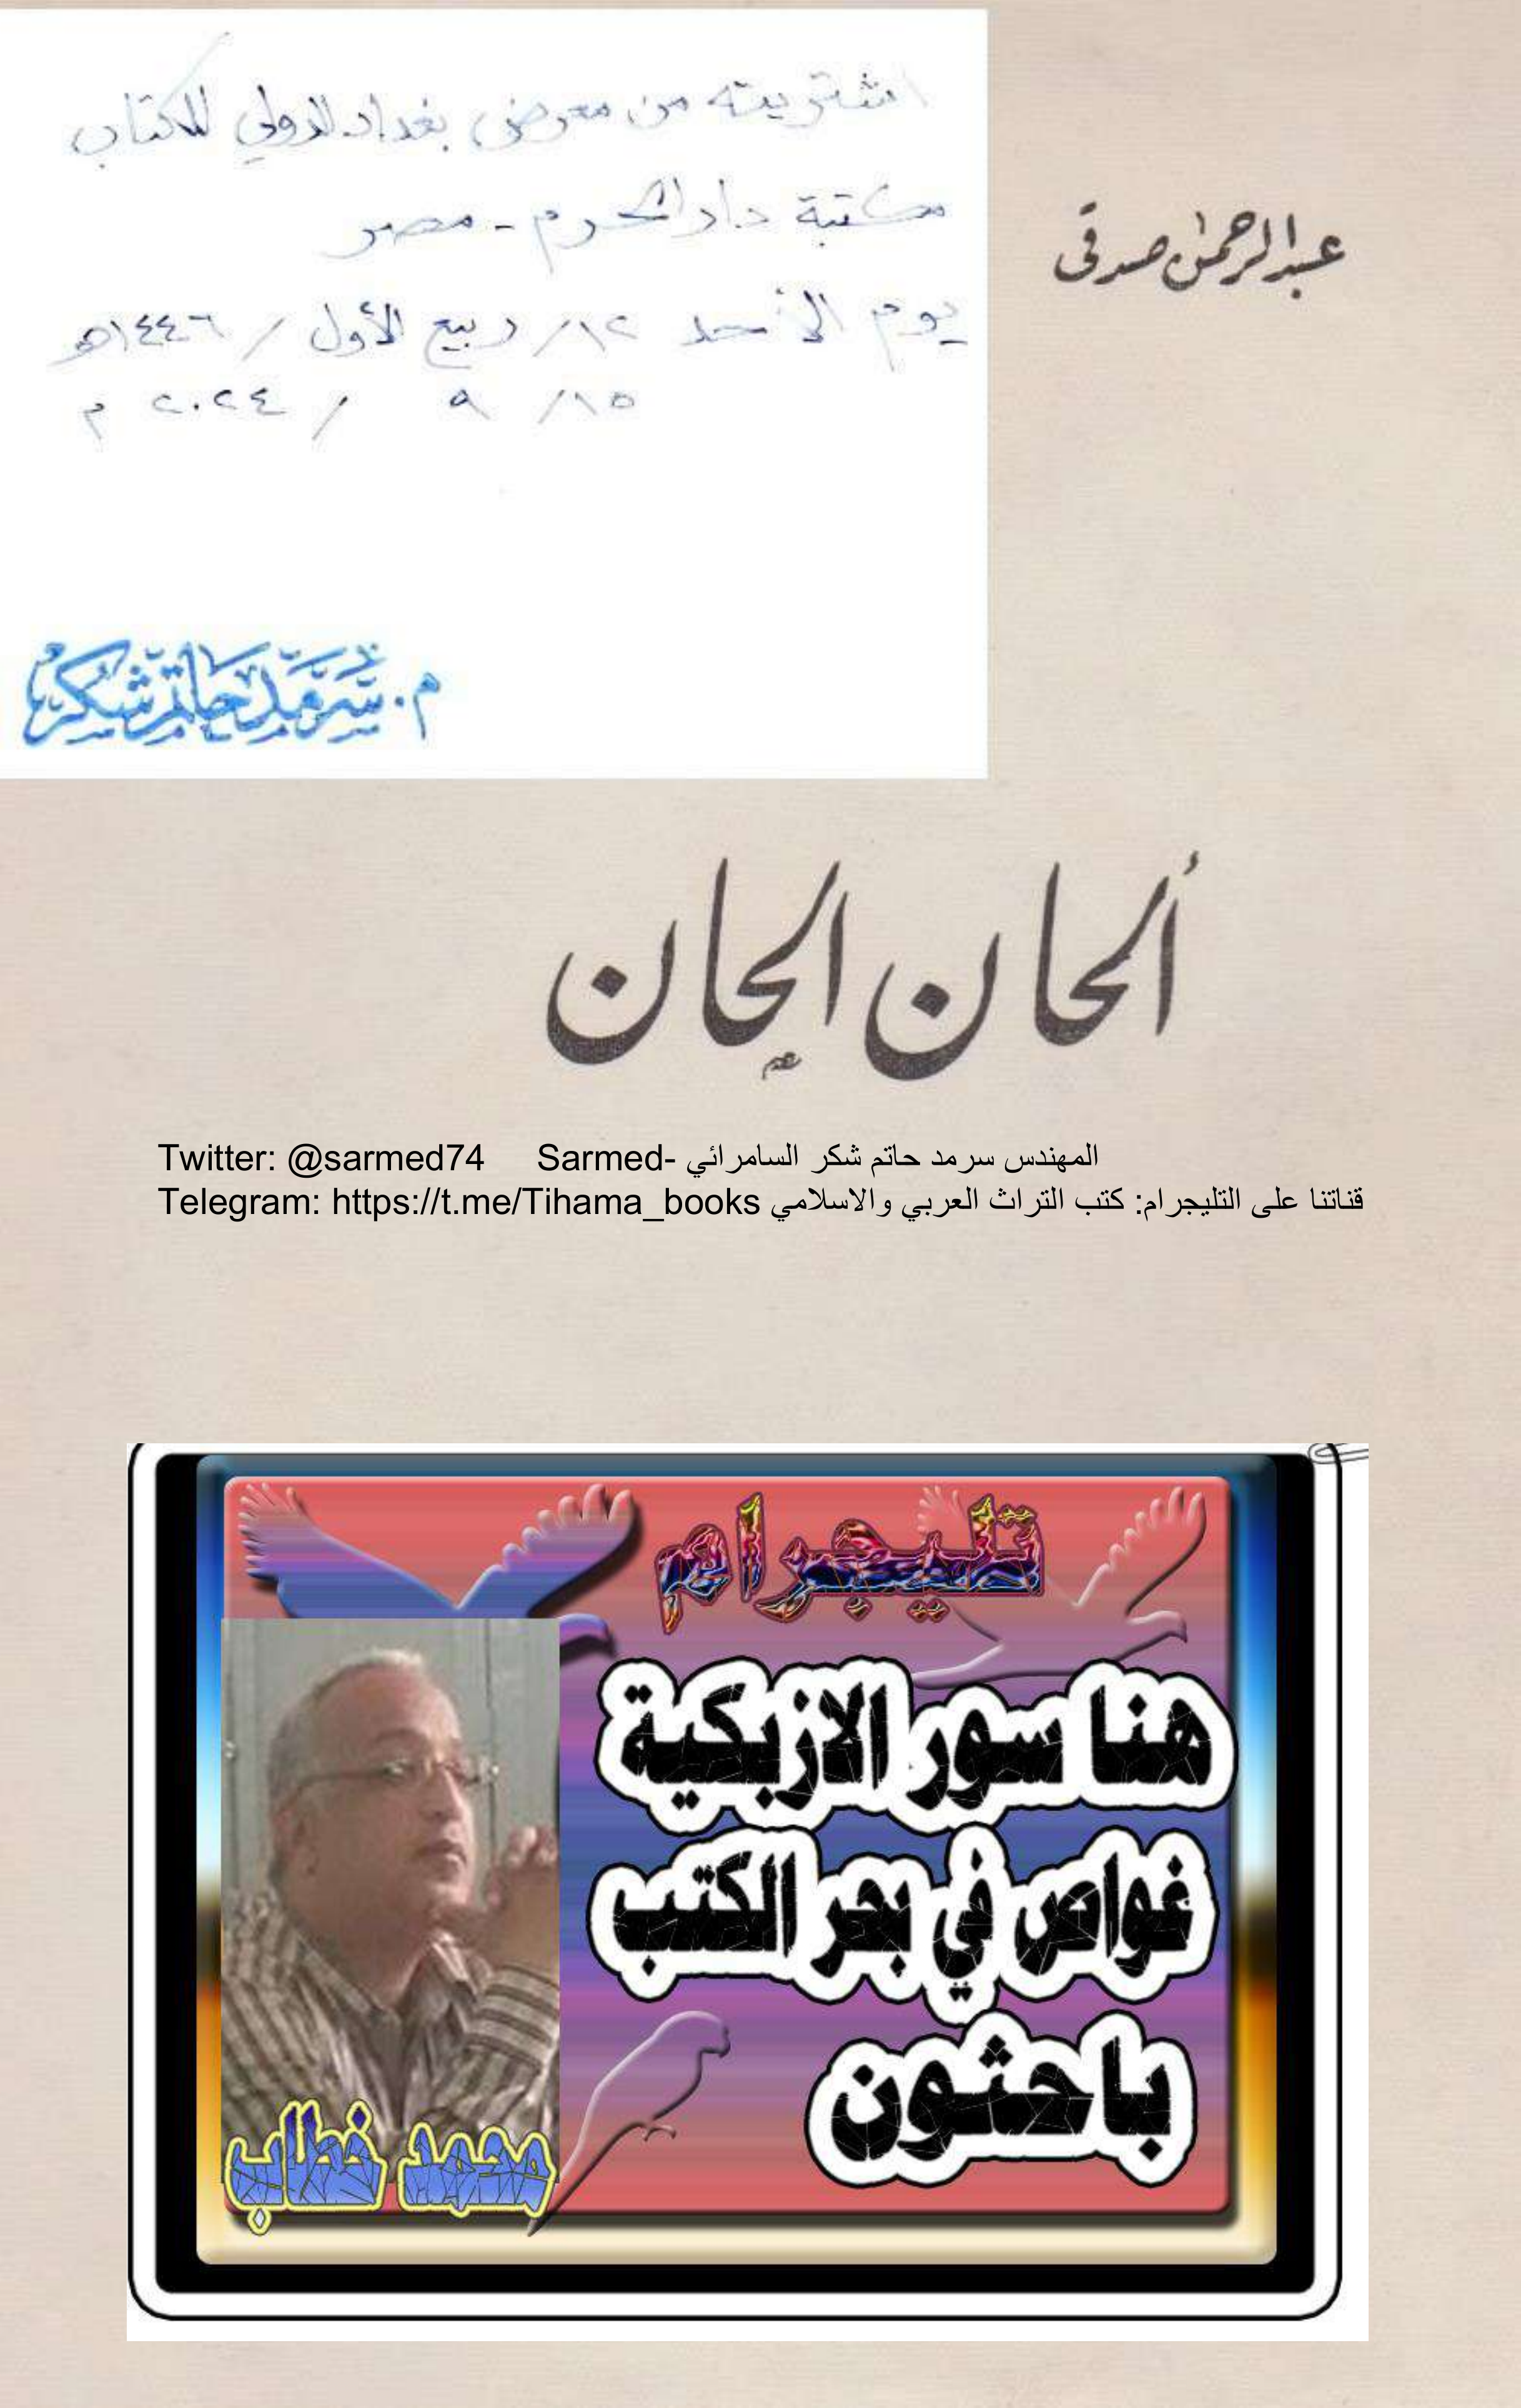 اشتريته من معرض بغداد الدولي للكتاب
مكتبة دار الحرم - مصر
يوم الأحد ١٢/ ربيع الأول / ١٤٤٦هـ
١٥/ ٩ / ٢٠٢٤ م
م. سرمد حاتم شكر
عبد الرحمن صدقى
ألحان الحان
Twitter: @sarmed74 Sarmed- المهندس سرمد حاتم شكر السامرائي
Telegram: https://t.me/Tihama_books قناتنا على التليجرام: كتب التراث العربي والاسلامي
تليجرام
هنا سور الازبكية
غواص في بحر الكتب
باحثون
محمد خطاب